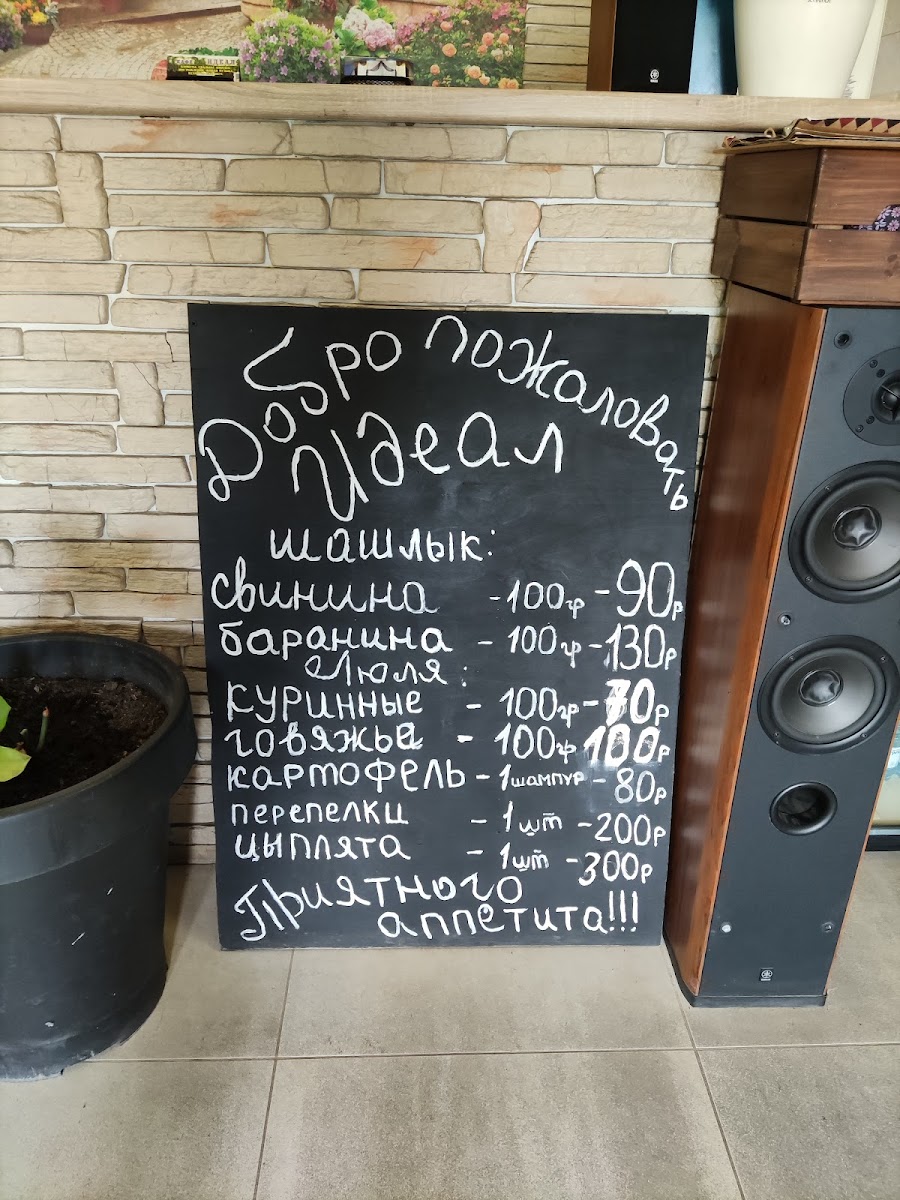 Добро пожаловать
Идеал
шашлык:
свинина - 100гр - 90р
баранина - 100гр - 130р
Люля:
куринные - 100гр - 70р
говяжье - 100гр 100р
картофель - 1 шампур - 80р
перепелки - 1 шт - 200р
цыплята - 1 шт - 300р
Приятного
аппетита!!!